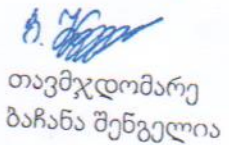 თავმჯდომარე
ბაჩანა შენგელია